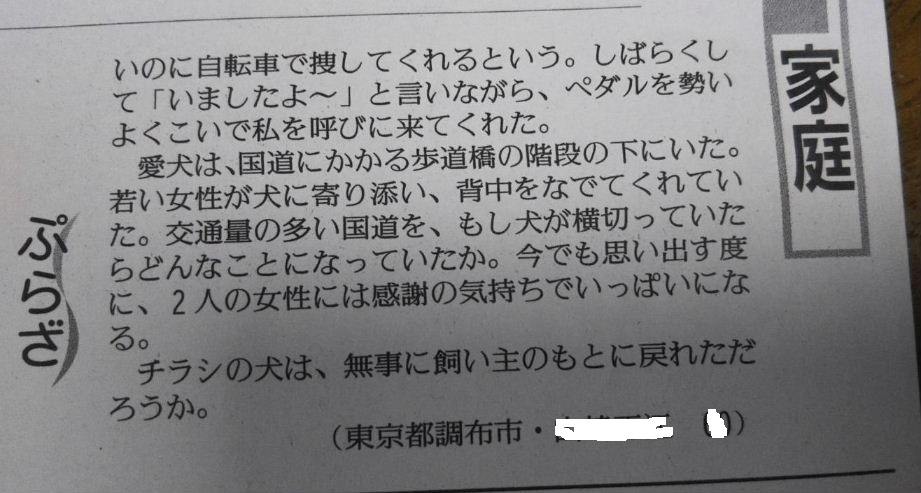 家庭
いのに自転車で捜してくれるという。しばらくし
て「いましたよ〜」と言いながら、ペダルを勢い
よくこいで私を呼びに来てくれた。
愛犬は、国道にかかる歩道橋の階段の下にいた。
若い女性が犬に寄り添い、背中をなでてくれてい
た。交通量の多い国道を、もし犬が横切っていた
らどんなことになっていたか。今でも思い出す度
に、2人の女性には感謝の気持ちでいっぱいにな
る。
チラシの犬は、無事に飼い主のもとに戻れただ
ろうか。
(東京都調布市・ )
ぷらざ